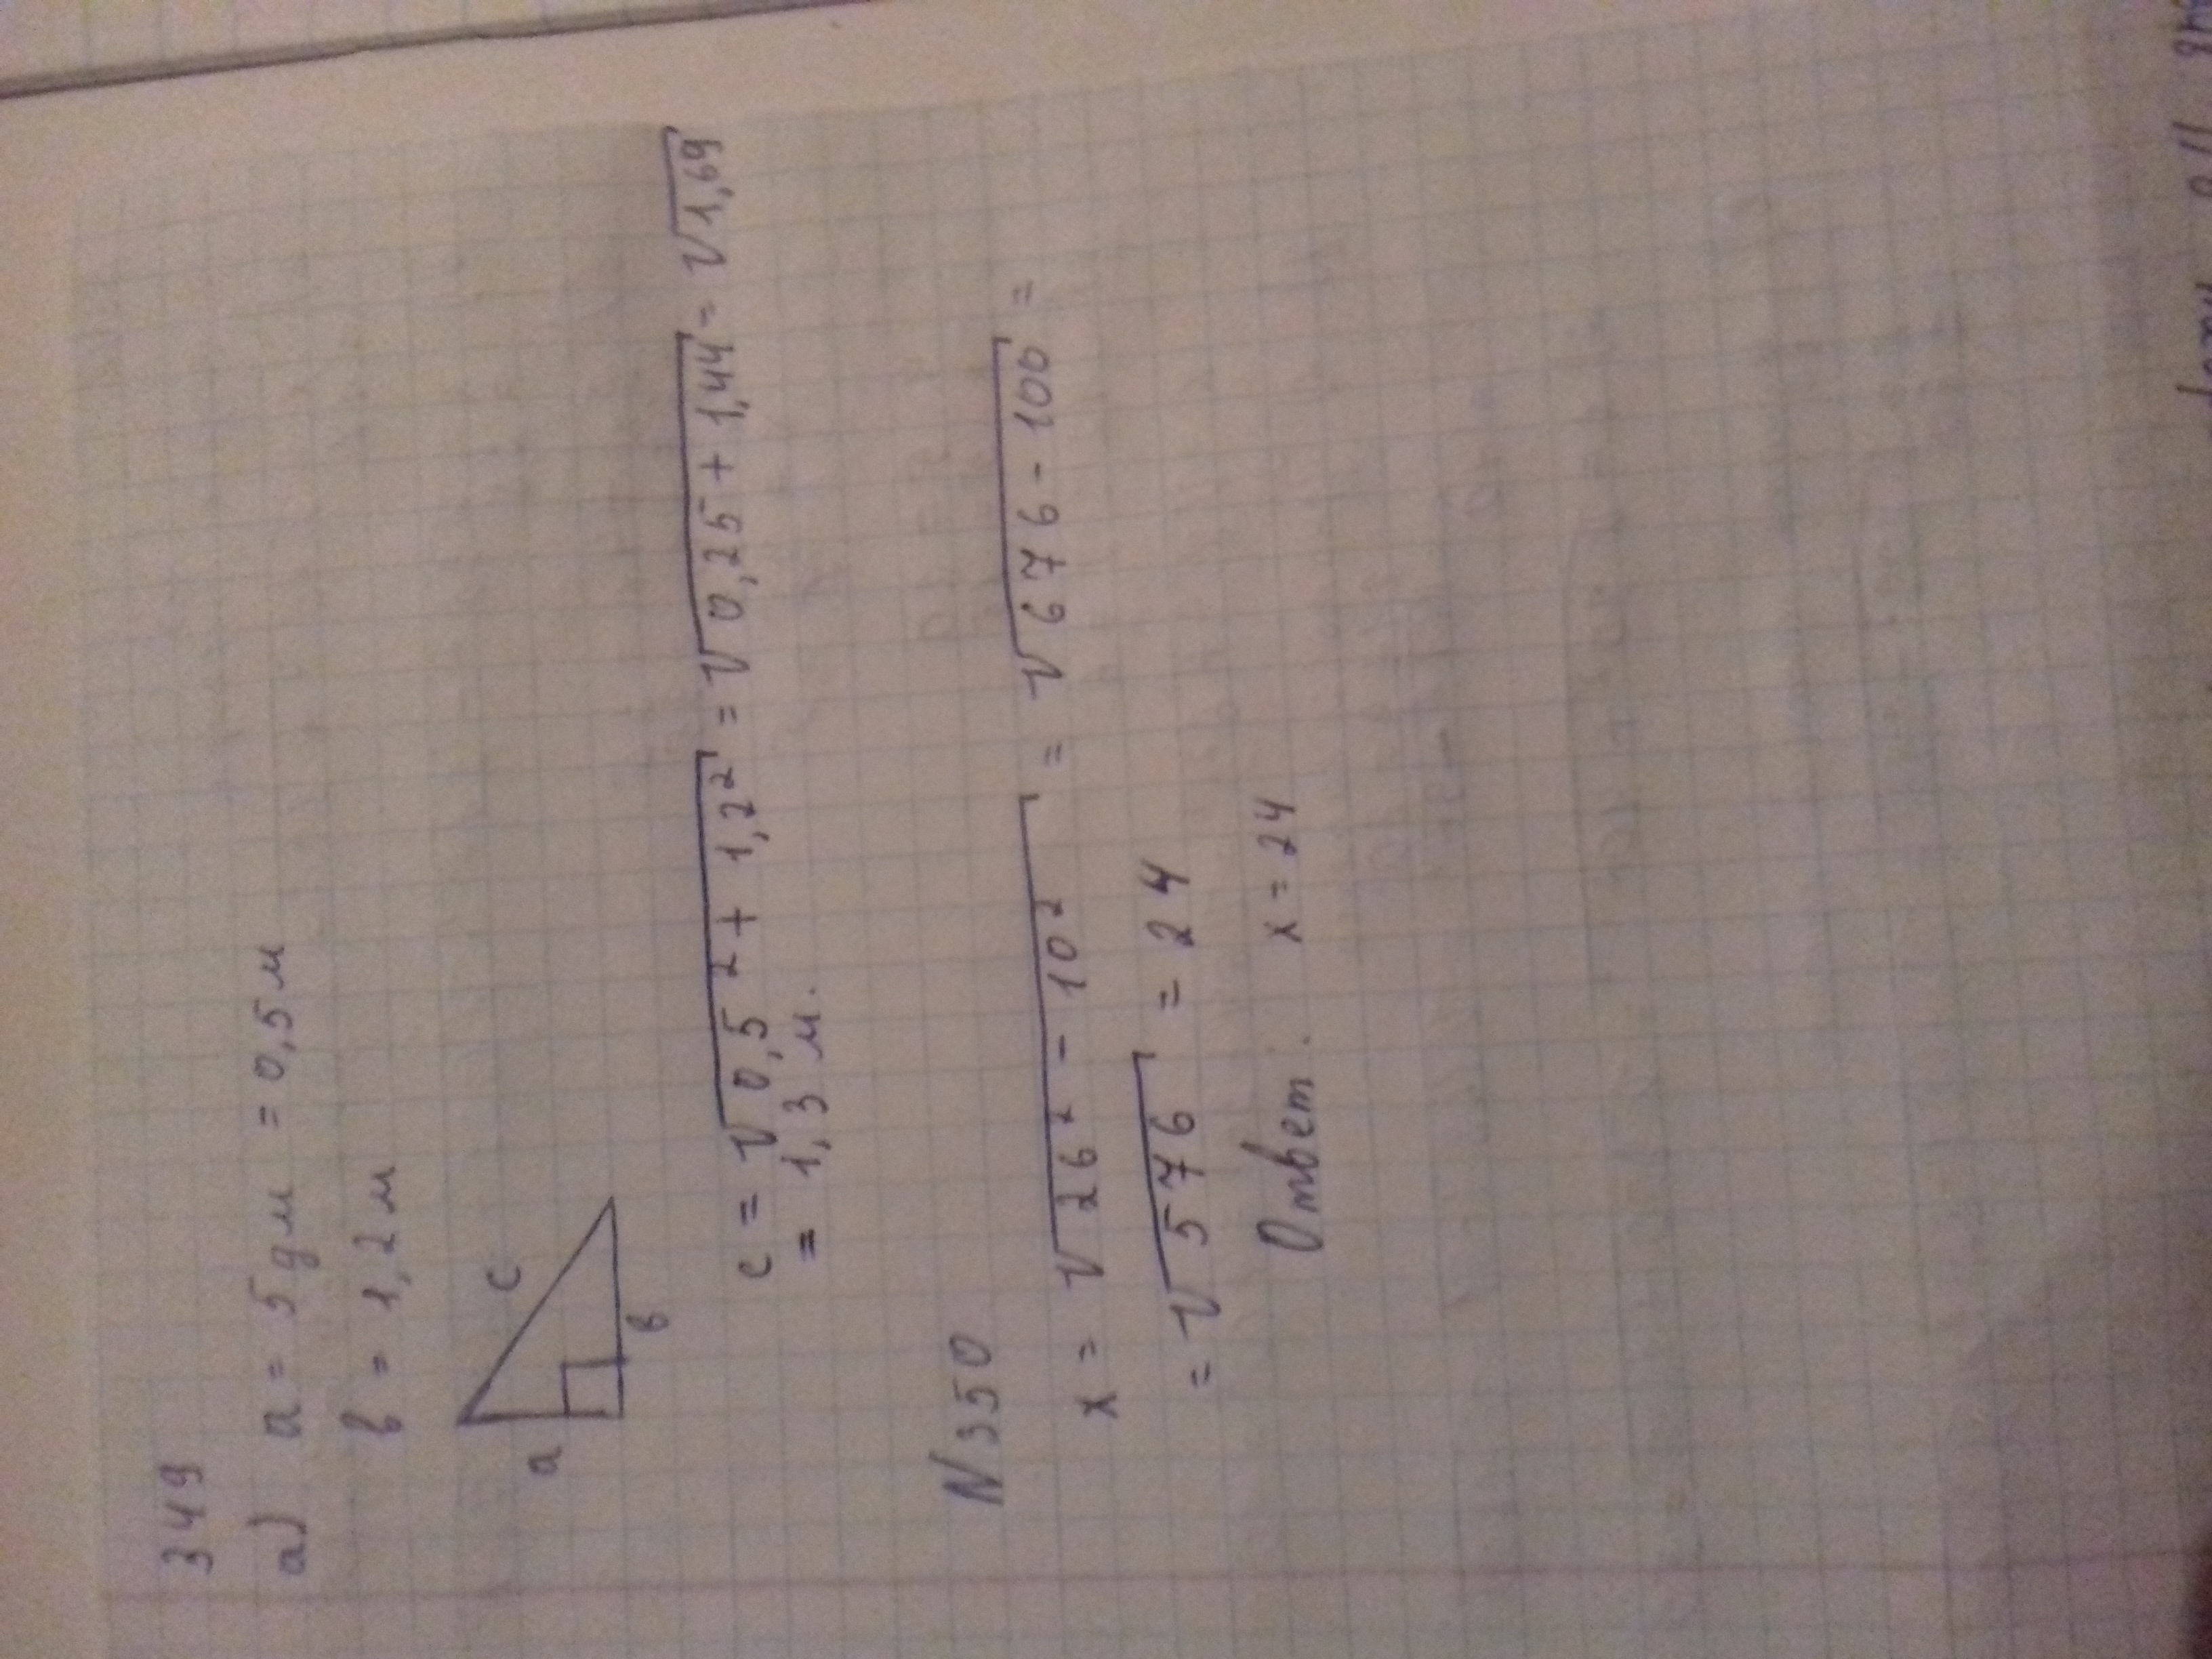 349
а) a = 5 дм = 0,5 м
в = 1,2 м
a
c
в
c = √0,5² + 1,2² = √0,25 + 1,44 = √1,69
= 1,3 м.
N350
x = √26² - 10² = √676 - 100 =
= √576 = 24
Ответ. x = 24